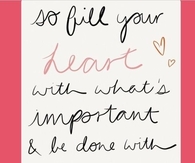 so fill your
heart
with what's
important
& be done with